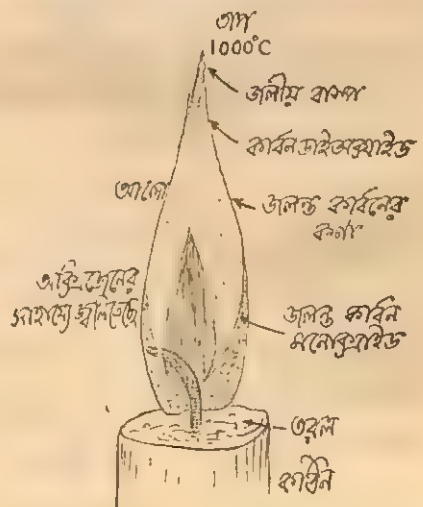 তাপ
1000°C
জলীয় বাষ্প
কার্বন ডাইঅক্সাইড
আলো
জলন্ত কার্বনের
কণা
অক্সিজেনের
সাহায্যে জ্বলিতেছে
জলন্ত কার্বন
মনোক্সাইড
তরল
কঠিন